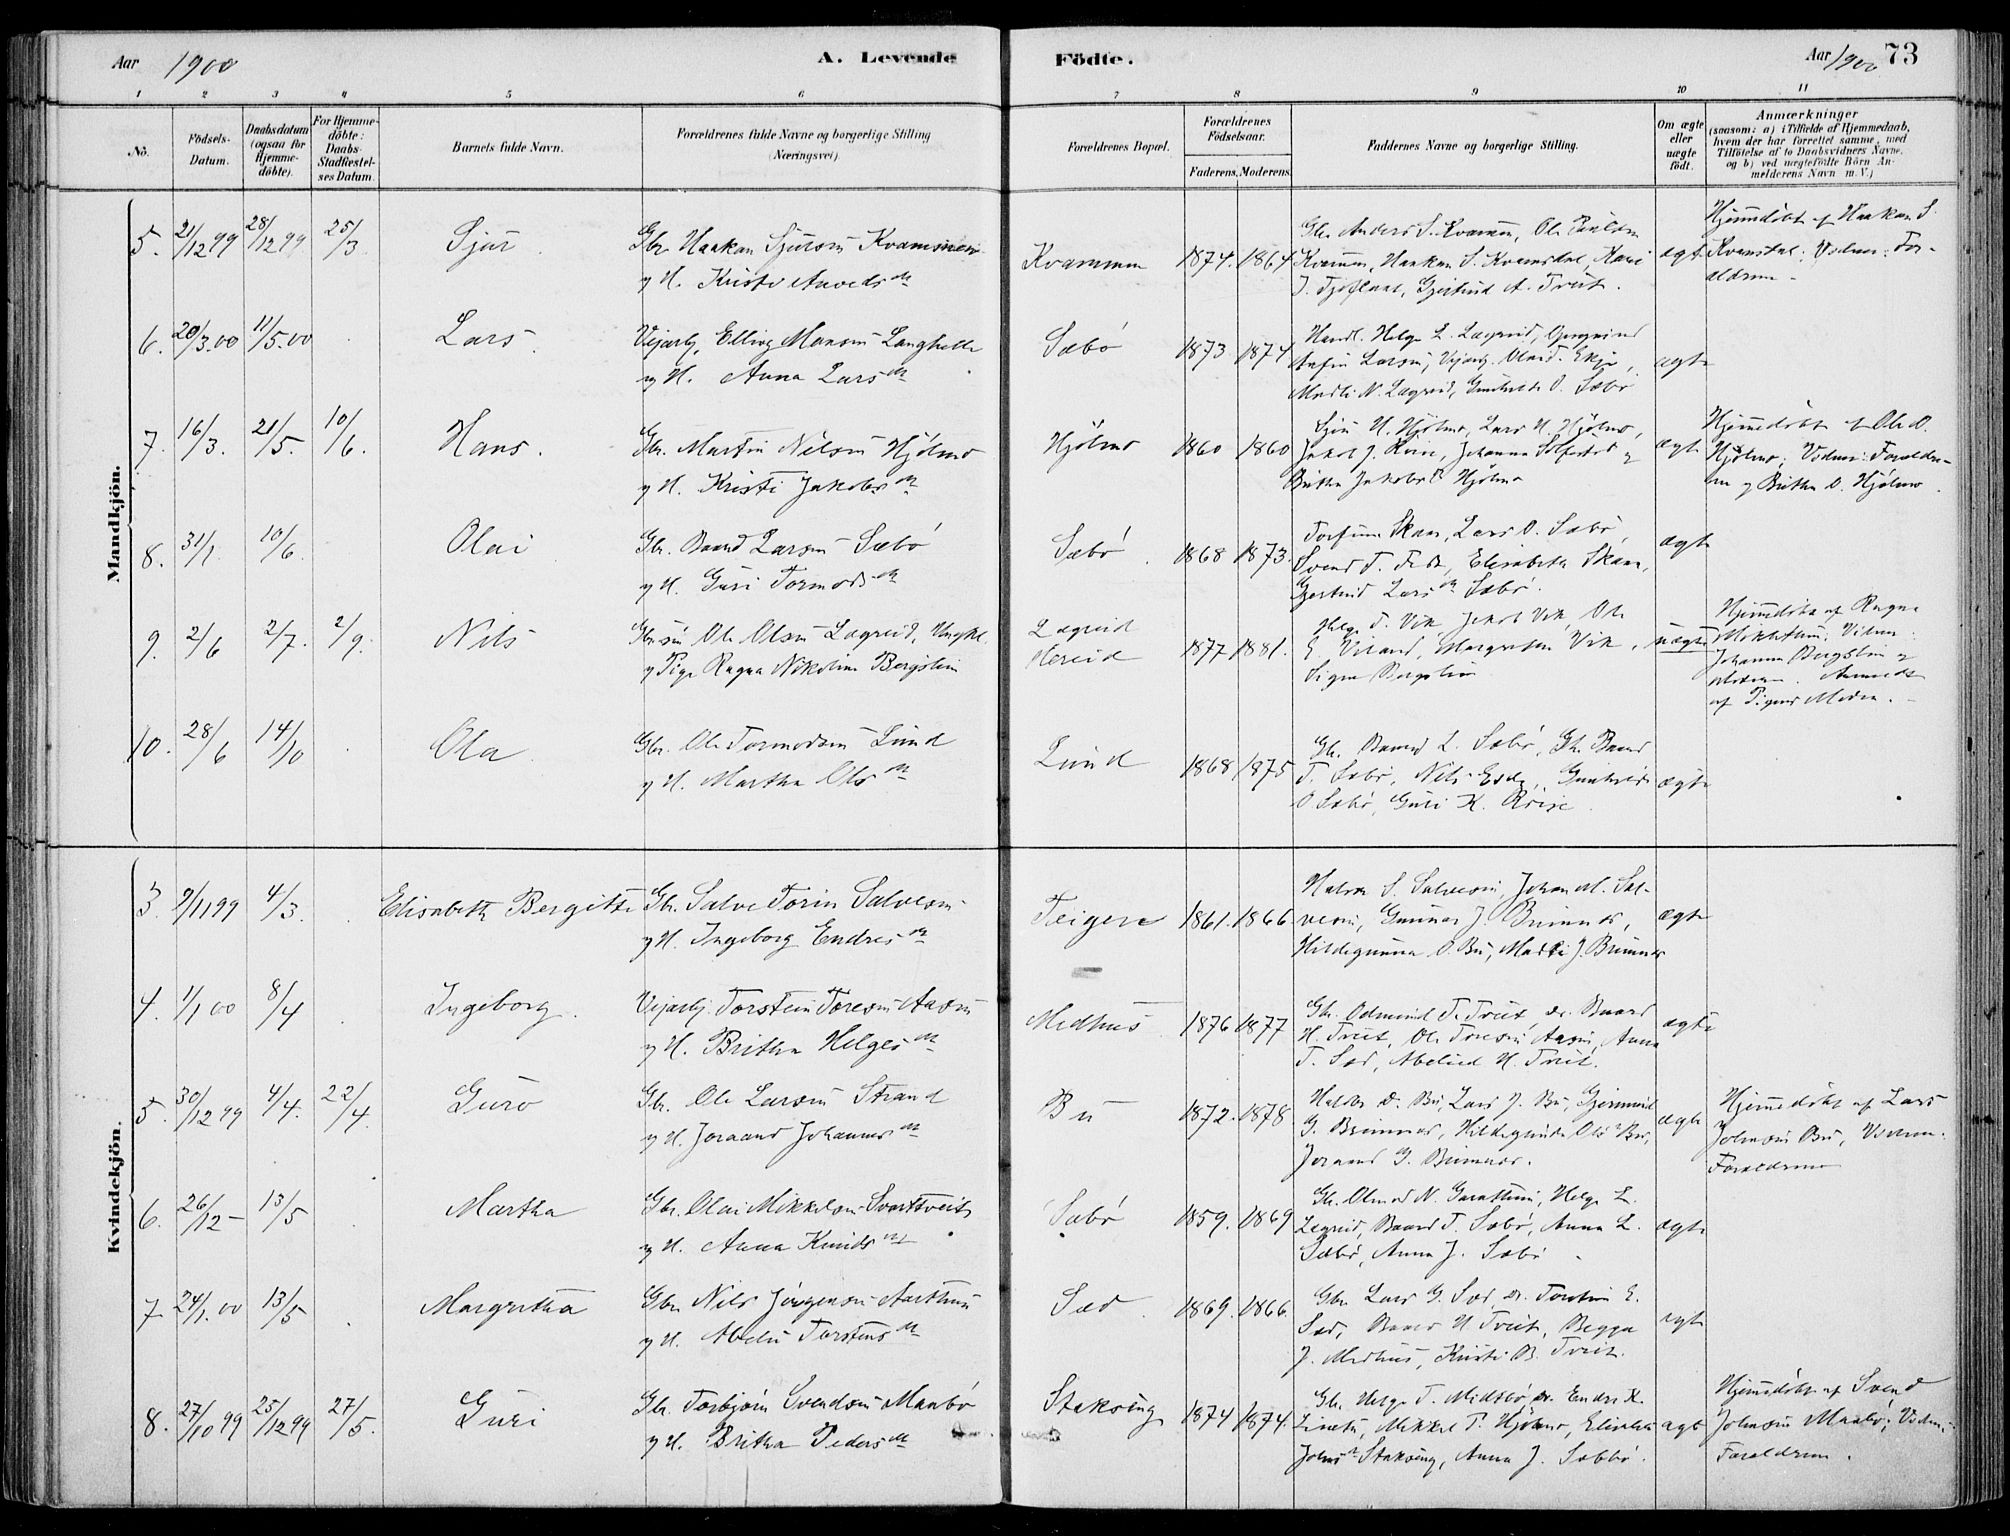 Aar 1900
A. Levende
Födte.
Aar 1900
73
1 2 3 4 5 6 7 8 9 10 11
No.
Födsels-Datum.
Daabsdatum (ogsaa for Hjemme-döbte).
For Hjemme-döbte: Daabs-Stadfæstel-ses Datum.
Barnets fulde Navn.
Forældrenes fulde Navne og borgerlige Stilling (Næringsvei).
Forældrenes Bopæl.
Forældrenes Födselsaar.
Faderens. Moderens.
Faddernes Navne og borgerlige Stilling.
Om ægte eller uægte födt.
Anmærkninger
(saasom: a) i Tilfælde af Hjemmedaab, hvem der har forrettet samme, med Tilföielse af to Daabsvidners Navne, og b) ved uægtefödte Börn An-melderens Navn m. V.)
Mandkjön.
5. 21/12 99 28/12 99 25/3. Sjur Gbr. Haakon Sjursen Kvammen
g H. Kristi Anveds dtr
Kvammen 1874. 1864 Gbr. Anders S. Kvammen, Ole Paulsen
Kvammen, Haakon S. Kvamsdal, Kari
Gjertrud A. Treit.
ægte
Hjemmedöbt af Haakon S.
Kvamsdal. Vidner: For-
ældrene
6. 20/3.00 11/5.00 Lars Vejarb. Elling Monsen Langhelle
g H. Anna Lars dtr
Sæbö 1873 1874 Handl. Helge L. Lægreid,
Larsen, Vejarb.
N. Lægreid, Gunhilde O. Sæbö
ægte
7. 16/3. 21/5. 10/6. Hans. Gbr. Martin Nilsen Hjölmo
g H. Kristi Jakobs dtr
Hjölmo 1860 1860 H. Hjölmo, Lars H. Hjölmo,
Jakob J. Johanna
Britha Jakobsd Hjölmo
ægte
Hjemmedöbt af Ole O.
Hjölmo, Vidner: Forældre-
ne g Britha O. Hjölmo
8. 31/1. 10/6. Olai Gbr. Baard Larsen Sæbö
g H. Guri Tormods dtr
Sæbö 1868 1873. Torfinn Skaar, Lars O. Sæbö,
Svend T. Elisabeta Skaar,
Gjertrud Lars dtr Sæbö.
ægte
9. 2/6 2/7. 2/9. Nils Gbr.sön Ole Olsen Lægreid, Ungkl.
g Pige Ragna Nikoline Bergslien
Lægreid
Hereid
1877 1881. Helge T. Vik Jakob Vik, Ole
E. Margretha Vik,
Signe Bergslien
uægte
Hjemmedöbt af Ragna
Vidner:
Johanna Bergslien g
Moderen. Anmeldt
af Pigens Moder.
10. 28/6 14/10 Ola Gbr. Ole Tormodsen Lund
g H. Martha Ols dtr
Lund 1868 1875 Gbr. Baard L. Sæbö, Gbr. Baard
T. Sæbö, Nils Gunhild
O Sæbö, Guri K.
ægte
Kvindekjön.
3. 9/11 99 4/3. Elisabeth Bergitte Gbr. Salve Torin Salvesen
g H. Ingeborg Endres dtr
Teigen 1861. 1866 Halvor S. Salvesen, Johan M. Sal-
vesen, Gunnar J. Brimnes,
Hildegunna O. Bu, Marta J. Brimnes
ægte
4. 1/1 00 8/4 Ingeborg. Vejarb. Torstein Toresen Aasen
g H. Britha Helges dtr
Medhus 1876 1877 Gbr. Odmund T. Treit, do. Baard
H. Treit, Ole Toresen Aasen, Anna
T. Sæd, Abelied H. Treit.
ægte
5. 30/12 99 4/4. 22/4. Guro Gbr. Ole Larsen Strand
g H. Joraand Johannes dtr
Bu 1872. 1878. Halvor D. Bu, Lars J. Bu, Gjermund
G. Brimnes, Hildegunda Ols Bu,
Joraand G. Brimnes.
ægte
Hjemmedöbt af Lars
Johnsen Bu, Vidner:
Forældrene
6. 26/12 – 13/5 Martha Gbr. Olai Mikkelsen Svartveit
g H. Anna Knuds dtr
Sæbö 1859. 1869 Gbr. Olmod N. Garatun, Helge L.
Legreid, Baard T. Sæbö, Anna L.
Sæbö, Anna J. Sæbö
ægte
7 24/1.00 13/5 Margretha Gbr. Nils Jörgensen Aarthun
g H. Abelu Torsteins dtr
Sæd 1869. 1866. Gbr. Lars G. Sæd, do. Torstein E.
Sæd, Baard H Treit, Begga
J. Medhus, Kristi B. Treit.
ægte
8. 27/10 99 25/12 99 27/5. Guri Gbr. Torbjörn Svendsen Maabö
g H. Britha Peders dtr
Staksing 1874 1874. Gbr. Helge T. Midtbö, do. Endre K.
Mikkel T. Hjölmo,
Johns dtr Staksing, Anna J. Sæbbö.
ægte
Hjemmedöbt af Svend
Johnsen Maabö; Vidner:
Forældrene.